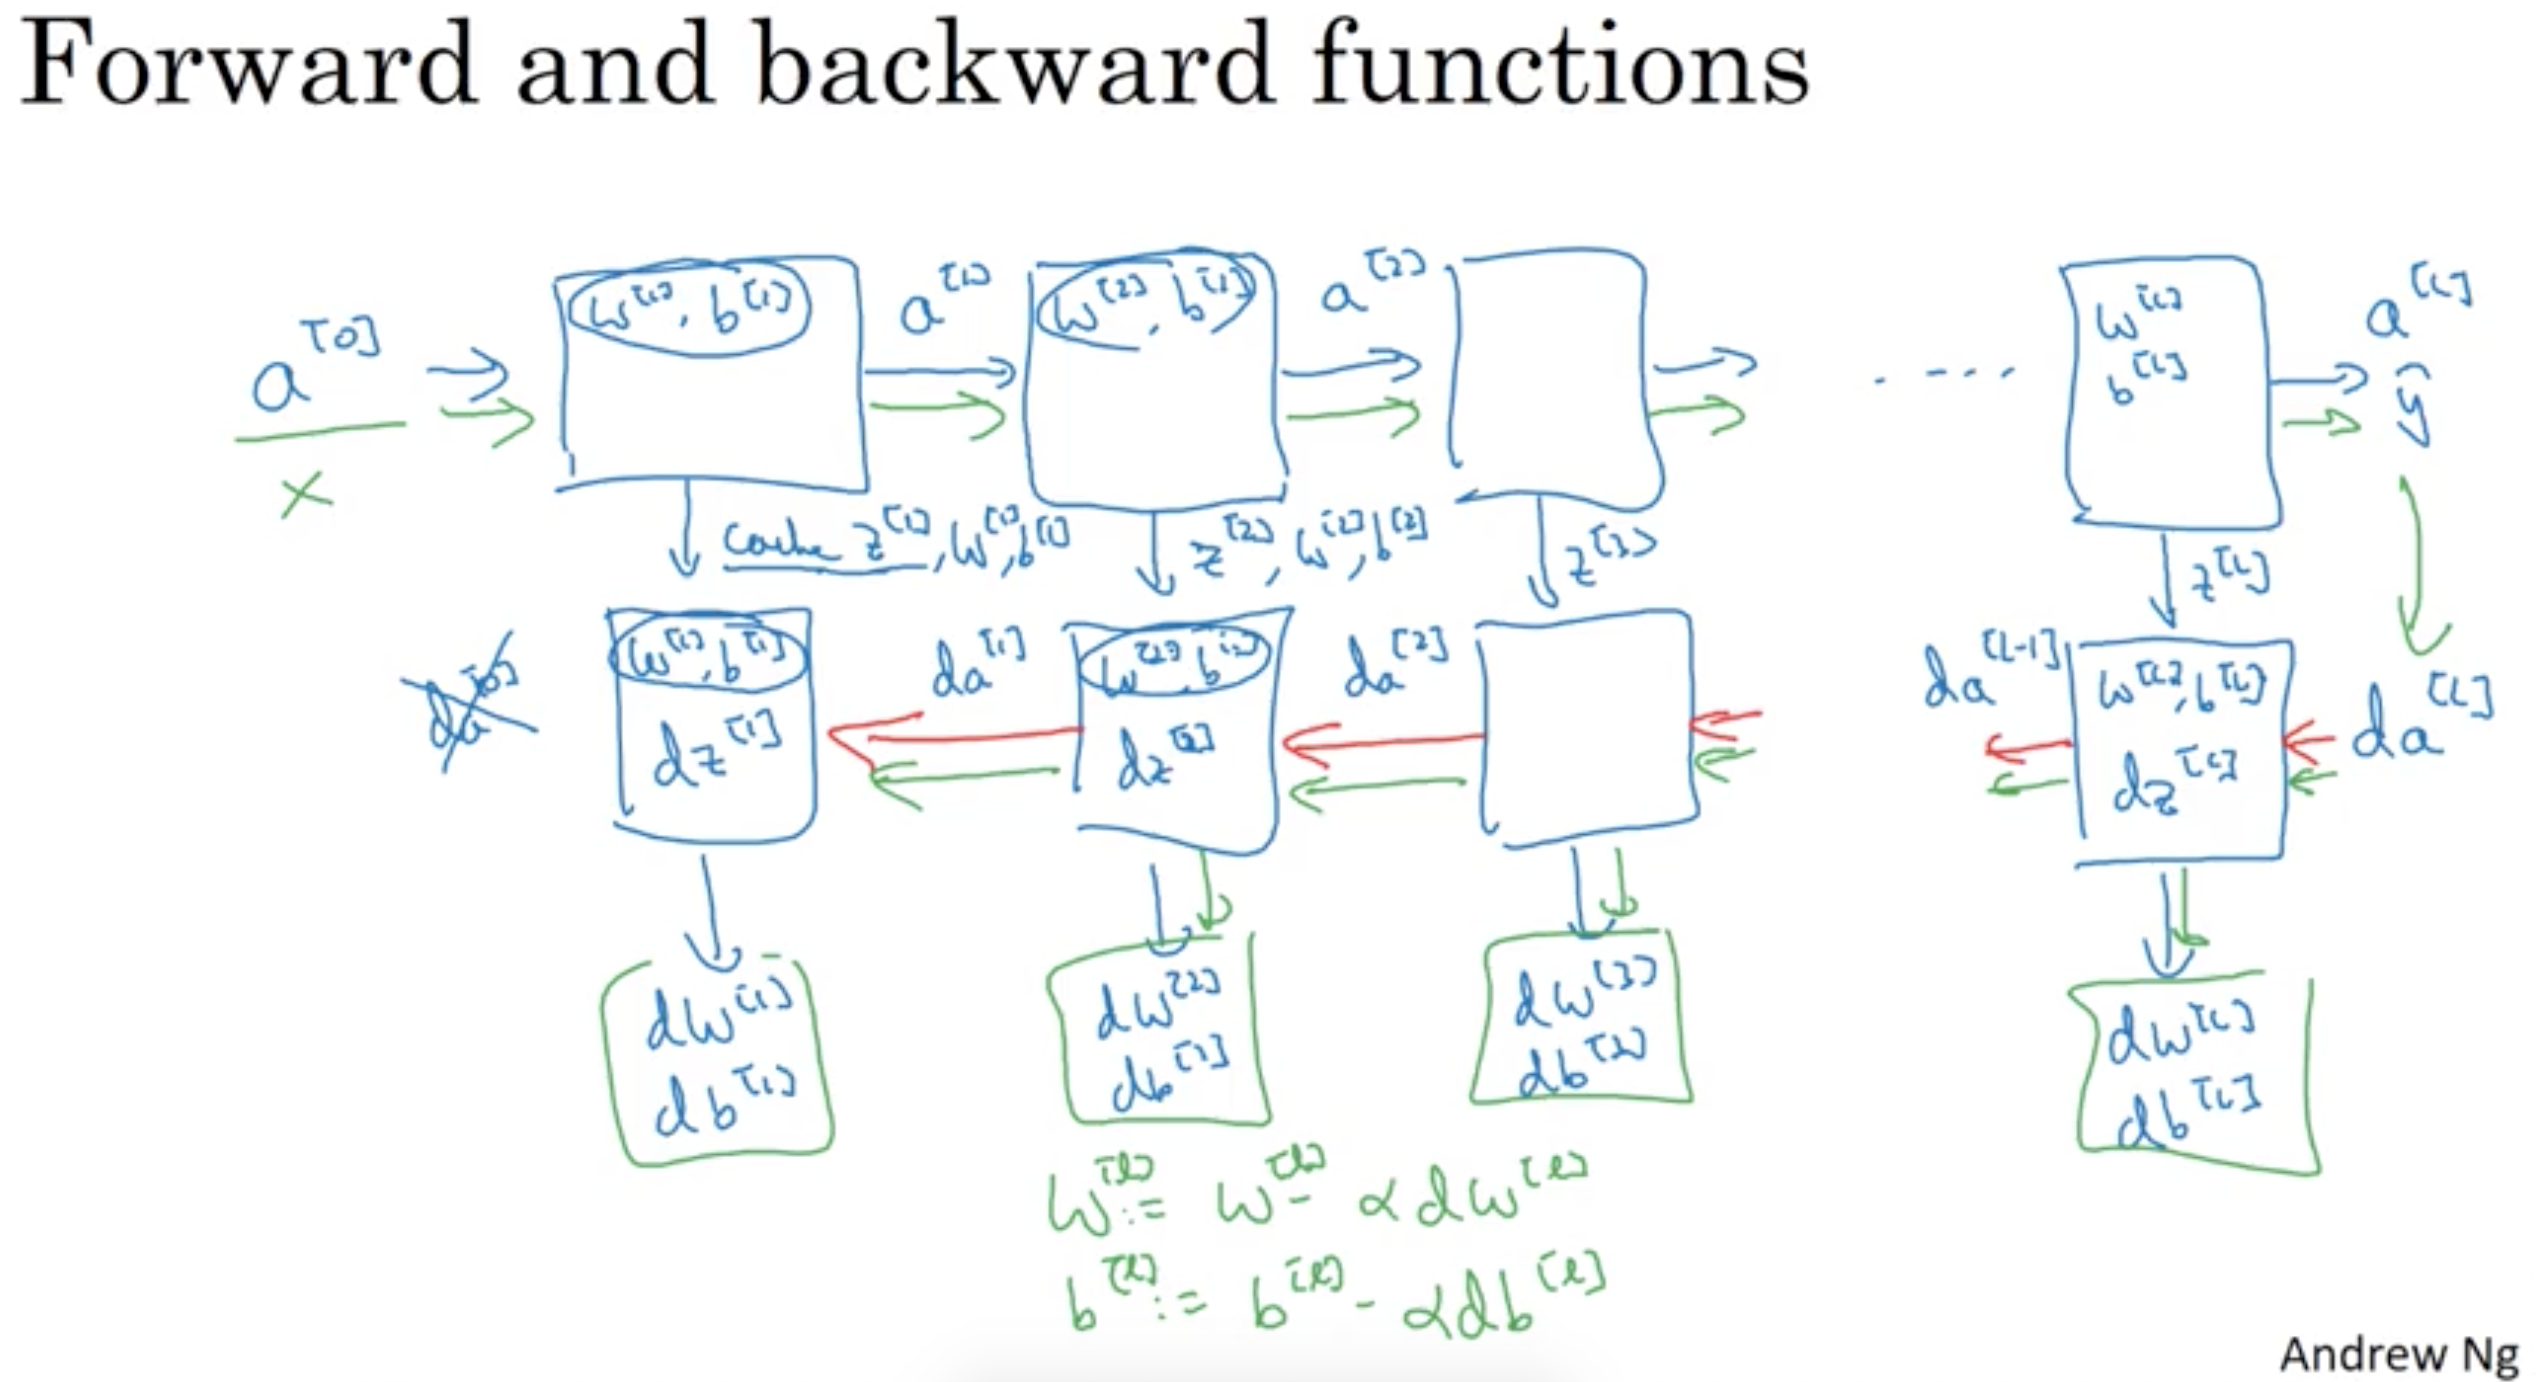 Forward and backward functions
a^[0] w^[1], b^[1] a^[1] w^[2], b^[1] a^[2] w^[L] b^[L] a^[L] ŷ
x
cache z^[1], w^[1], b^[1] z^[2], w^[2], b^[2] z^[3] z^[L]
da^[0] w^[1], b^[1] da^[1] w^[2], b^[2] da^[2] da^[L-1] w^[L], b^[L] da^[L]
dz^[1] dz^[2] dz^[L]
dw^[1] dw^[2] dw^[3] dw^[L]
db^[1] db^[L]
w^[l] := w^[l] - α dw^[l]
b^[l] := b^[l] - α db^[l]
Andrew Ng